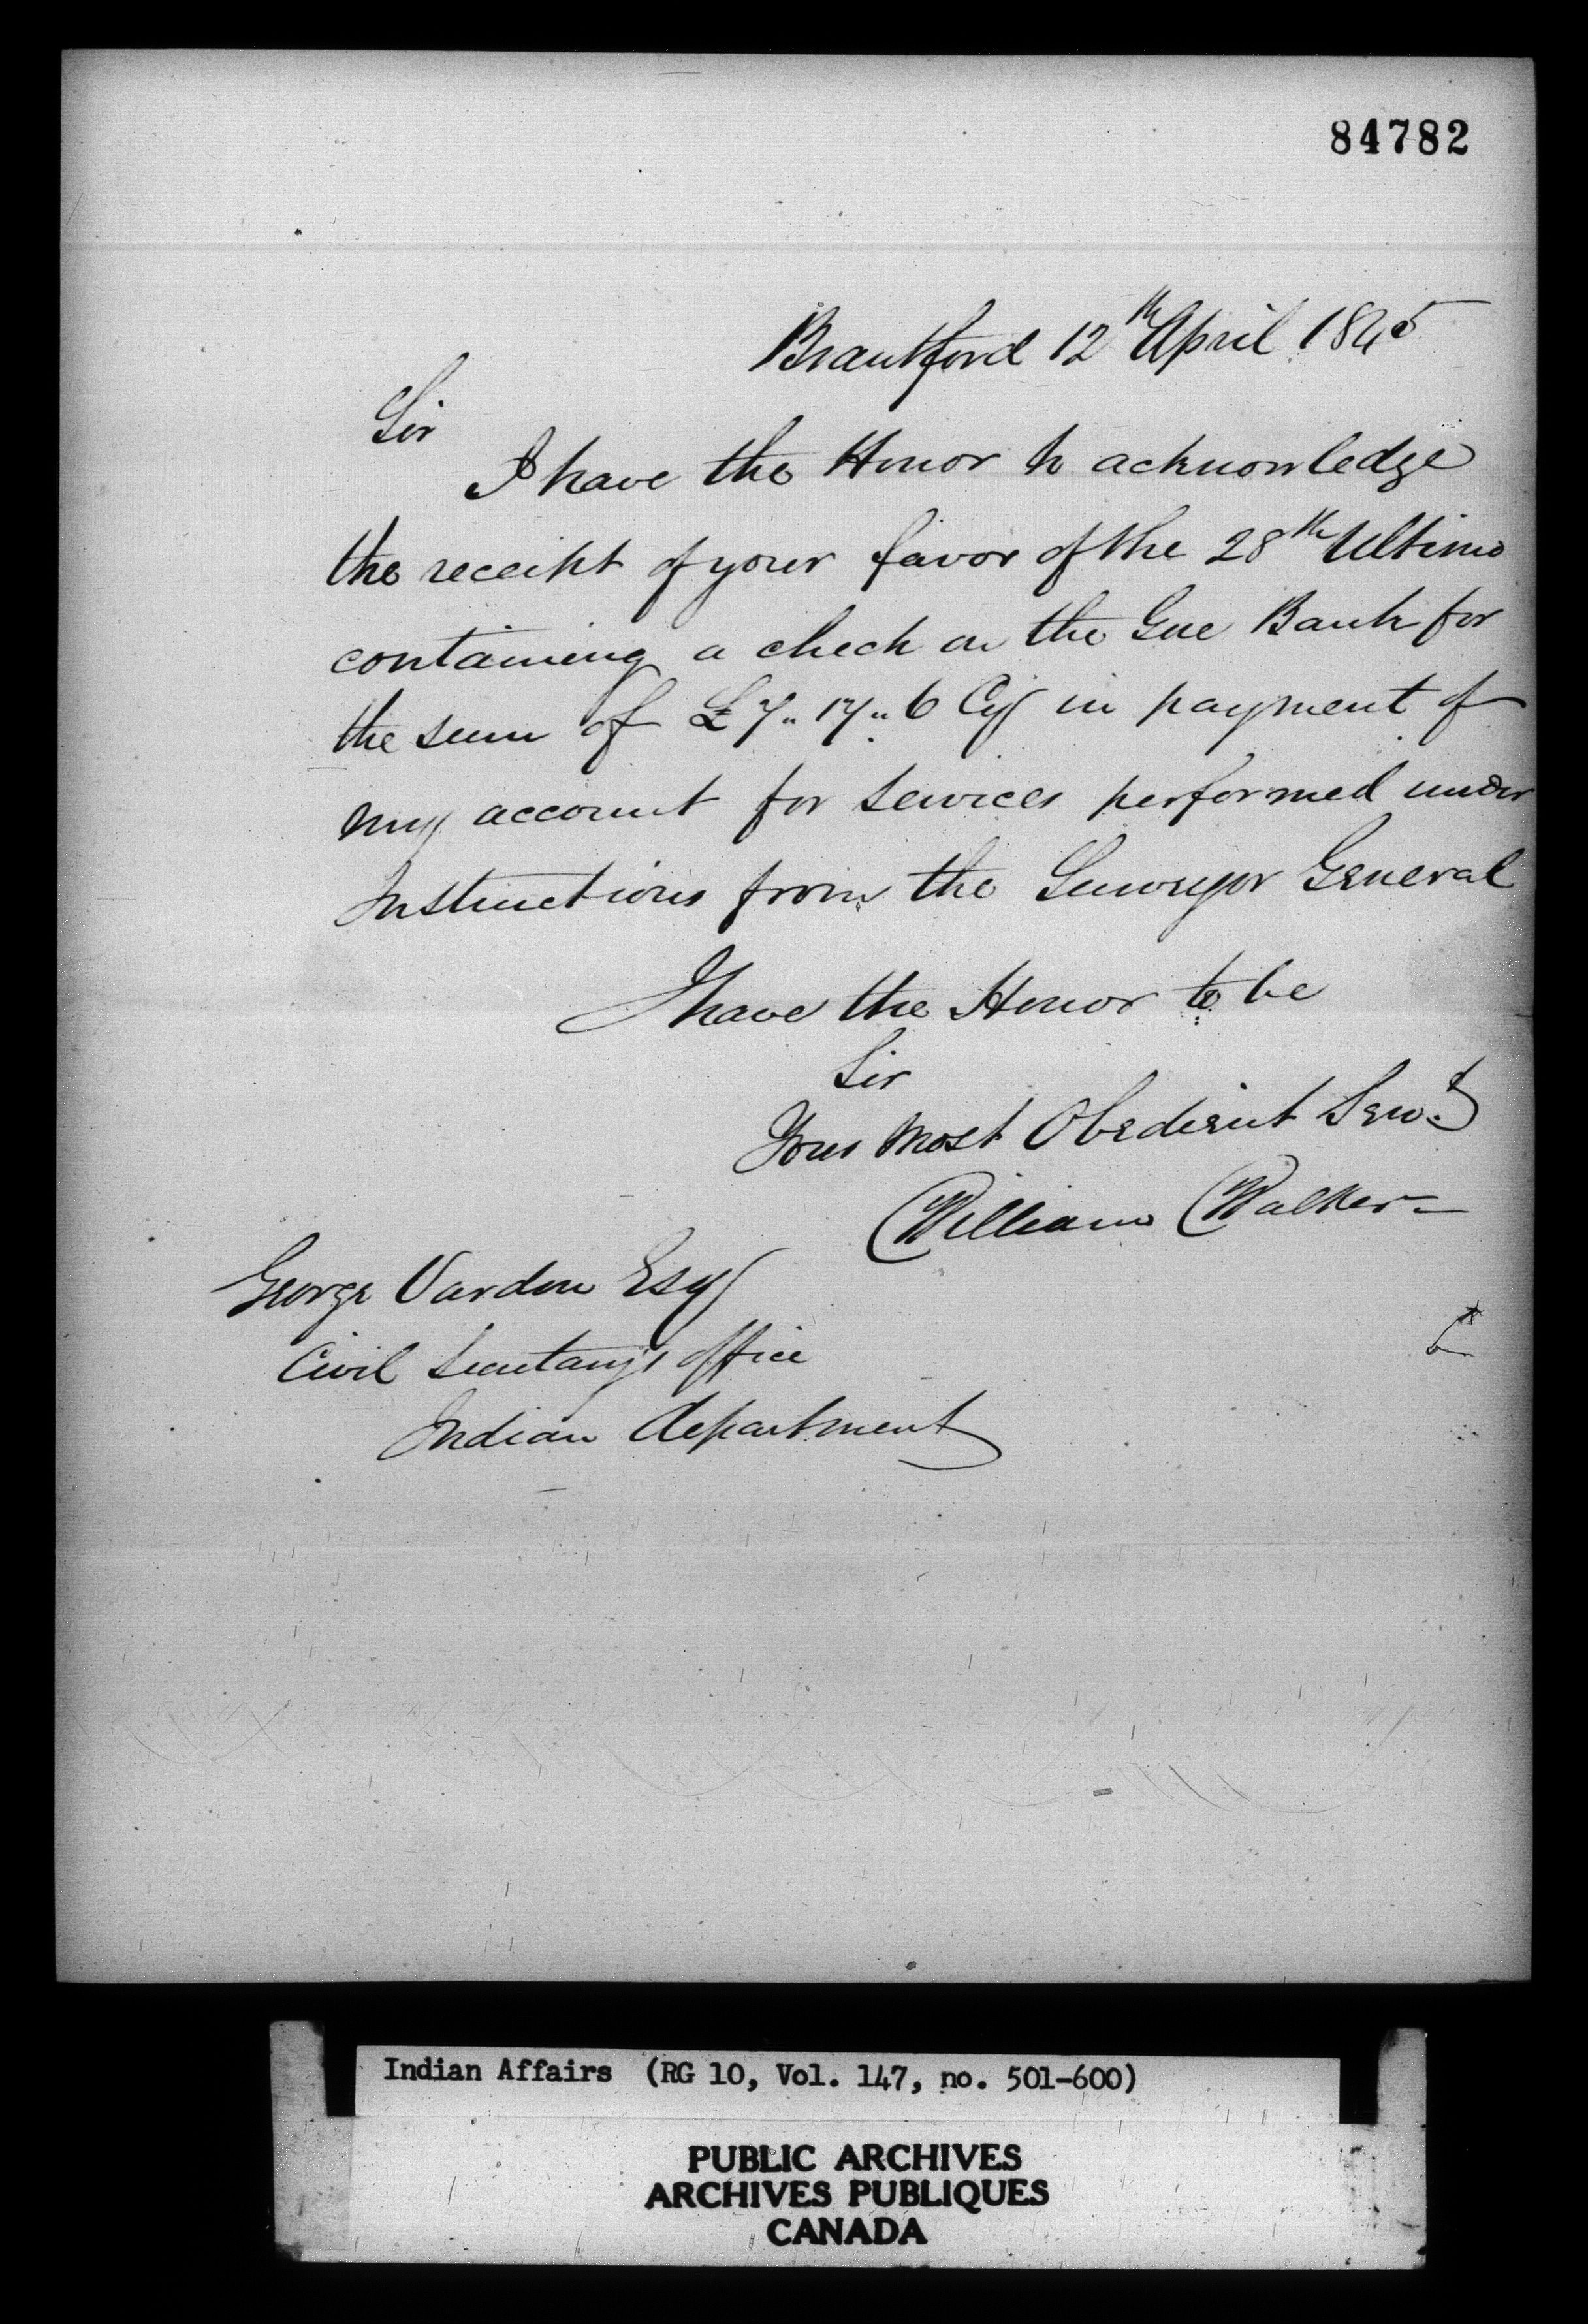 84782
Brantford 12th April 1845
Sir
I have the Honor to acknowledge
the receipt of your favor of the 28th Ultimo
containing a check on the Gore Bank for
the sum of £7 " 17 " 6 Cy in payment of
my account for services performed under
Instructions from the Surveyor General
I have the Honor to be
Sir
Your Most Obedient Servt
William Walker
George Vardon Esq
Civil Secretary's Office
Indian department
Indian Affairs (RG 10, Vol. 147, no. 501-600)
PUBLIC ARCHIVES
ARCHIVES PUBLIQUES
CANADA